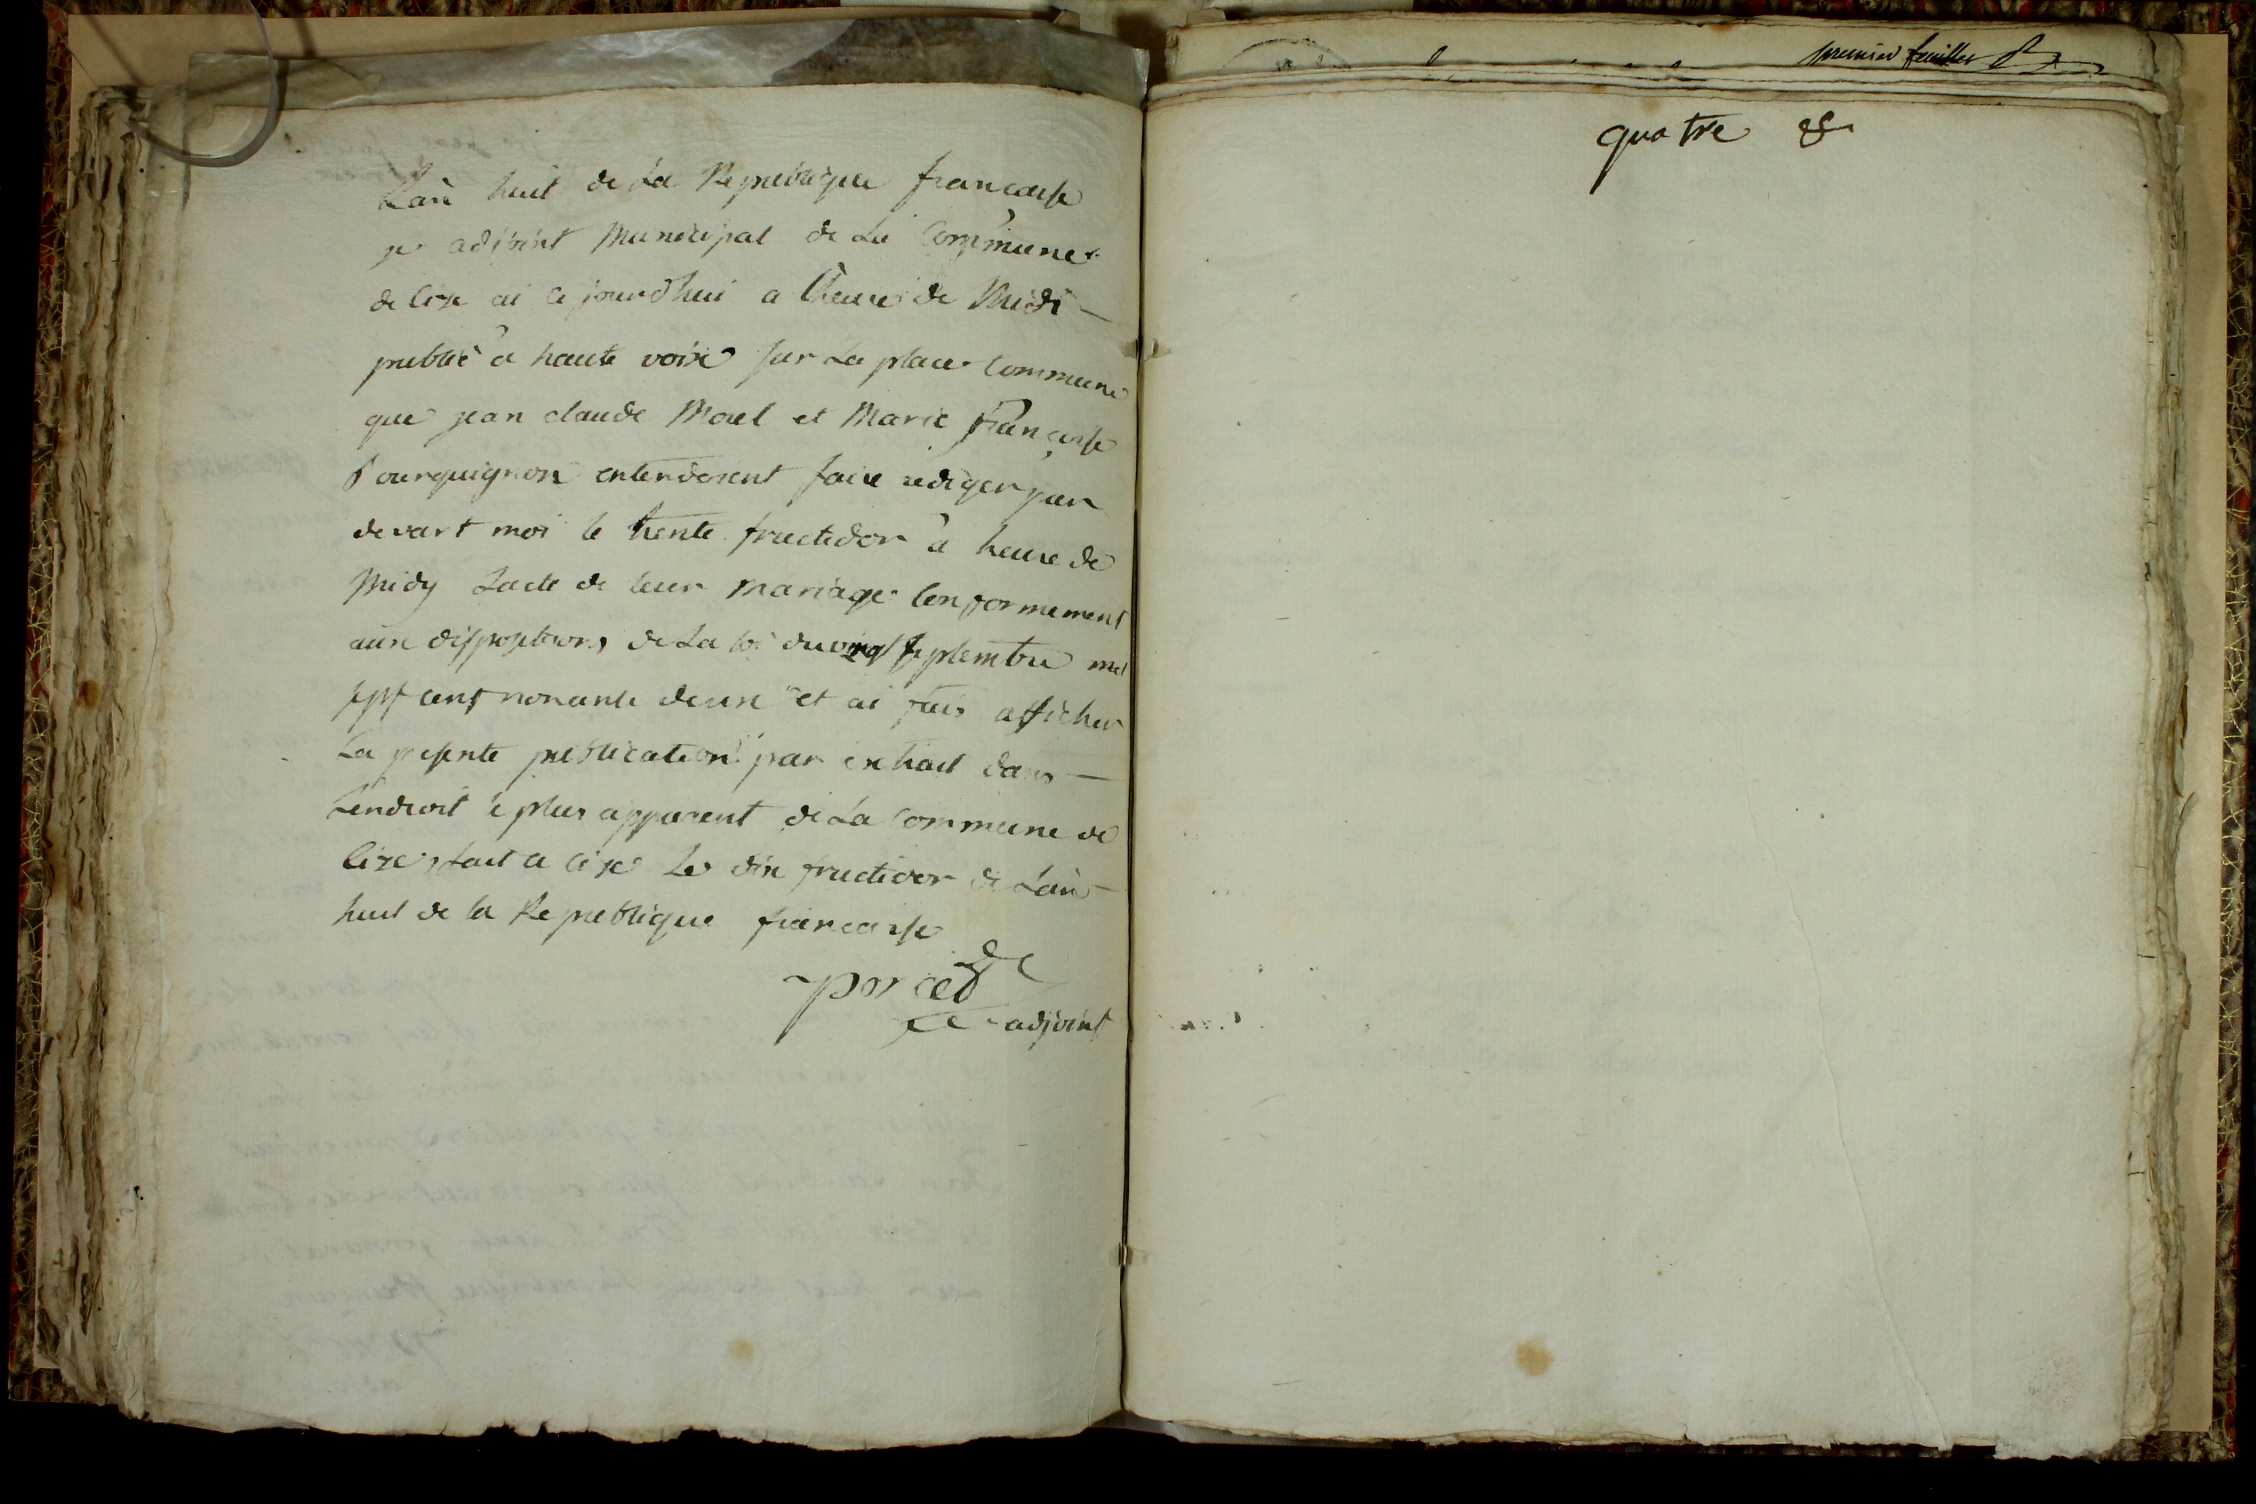 Lan huit de La Republique francaise
je adjoint Municipal de La Commune
de lize ai ce jourd'hui a Lheure de Midi
publié a haute voix sur La place Commune
que jean claude Morel et Marie françoise
Bourquignon entendoient faire rediger par
devant moi le trente fructidor a heure de
Midy Lacte de leur mariage Conformement
aux dispositions de La loi du vingt septembre mil
sept cent nonante deux et ai fais afficher
La presente publication par extrait dans
Lendroit le plus apparent de La Commune de
lize, fait a lize Le dix fructidor de Lan
huit de la Republique francaise
adjoint
premier feuillet
quatre